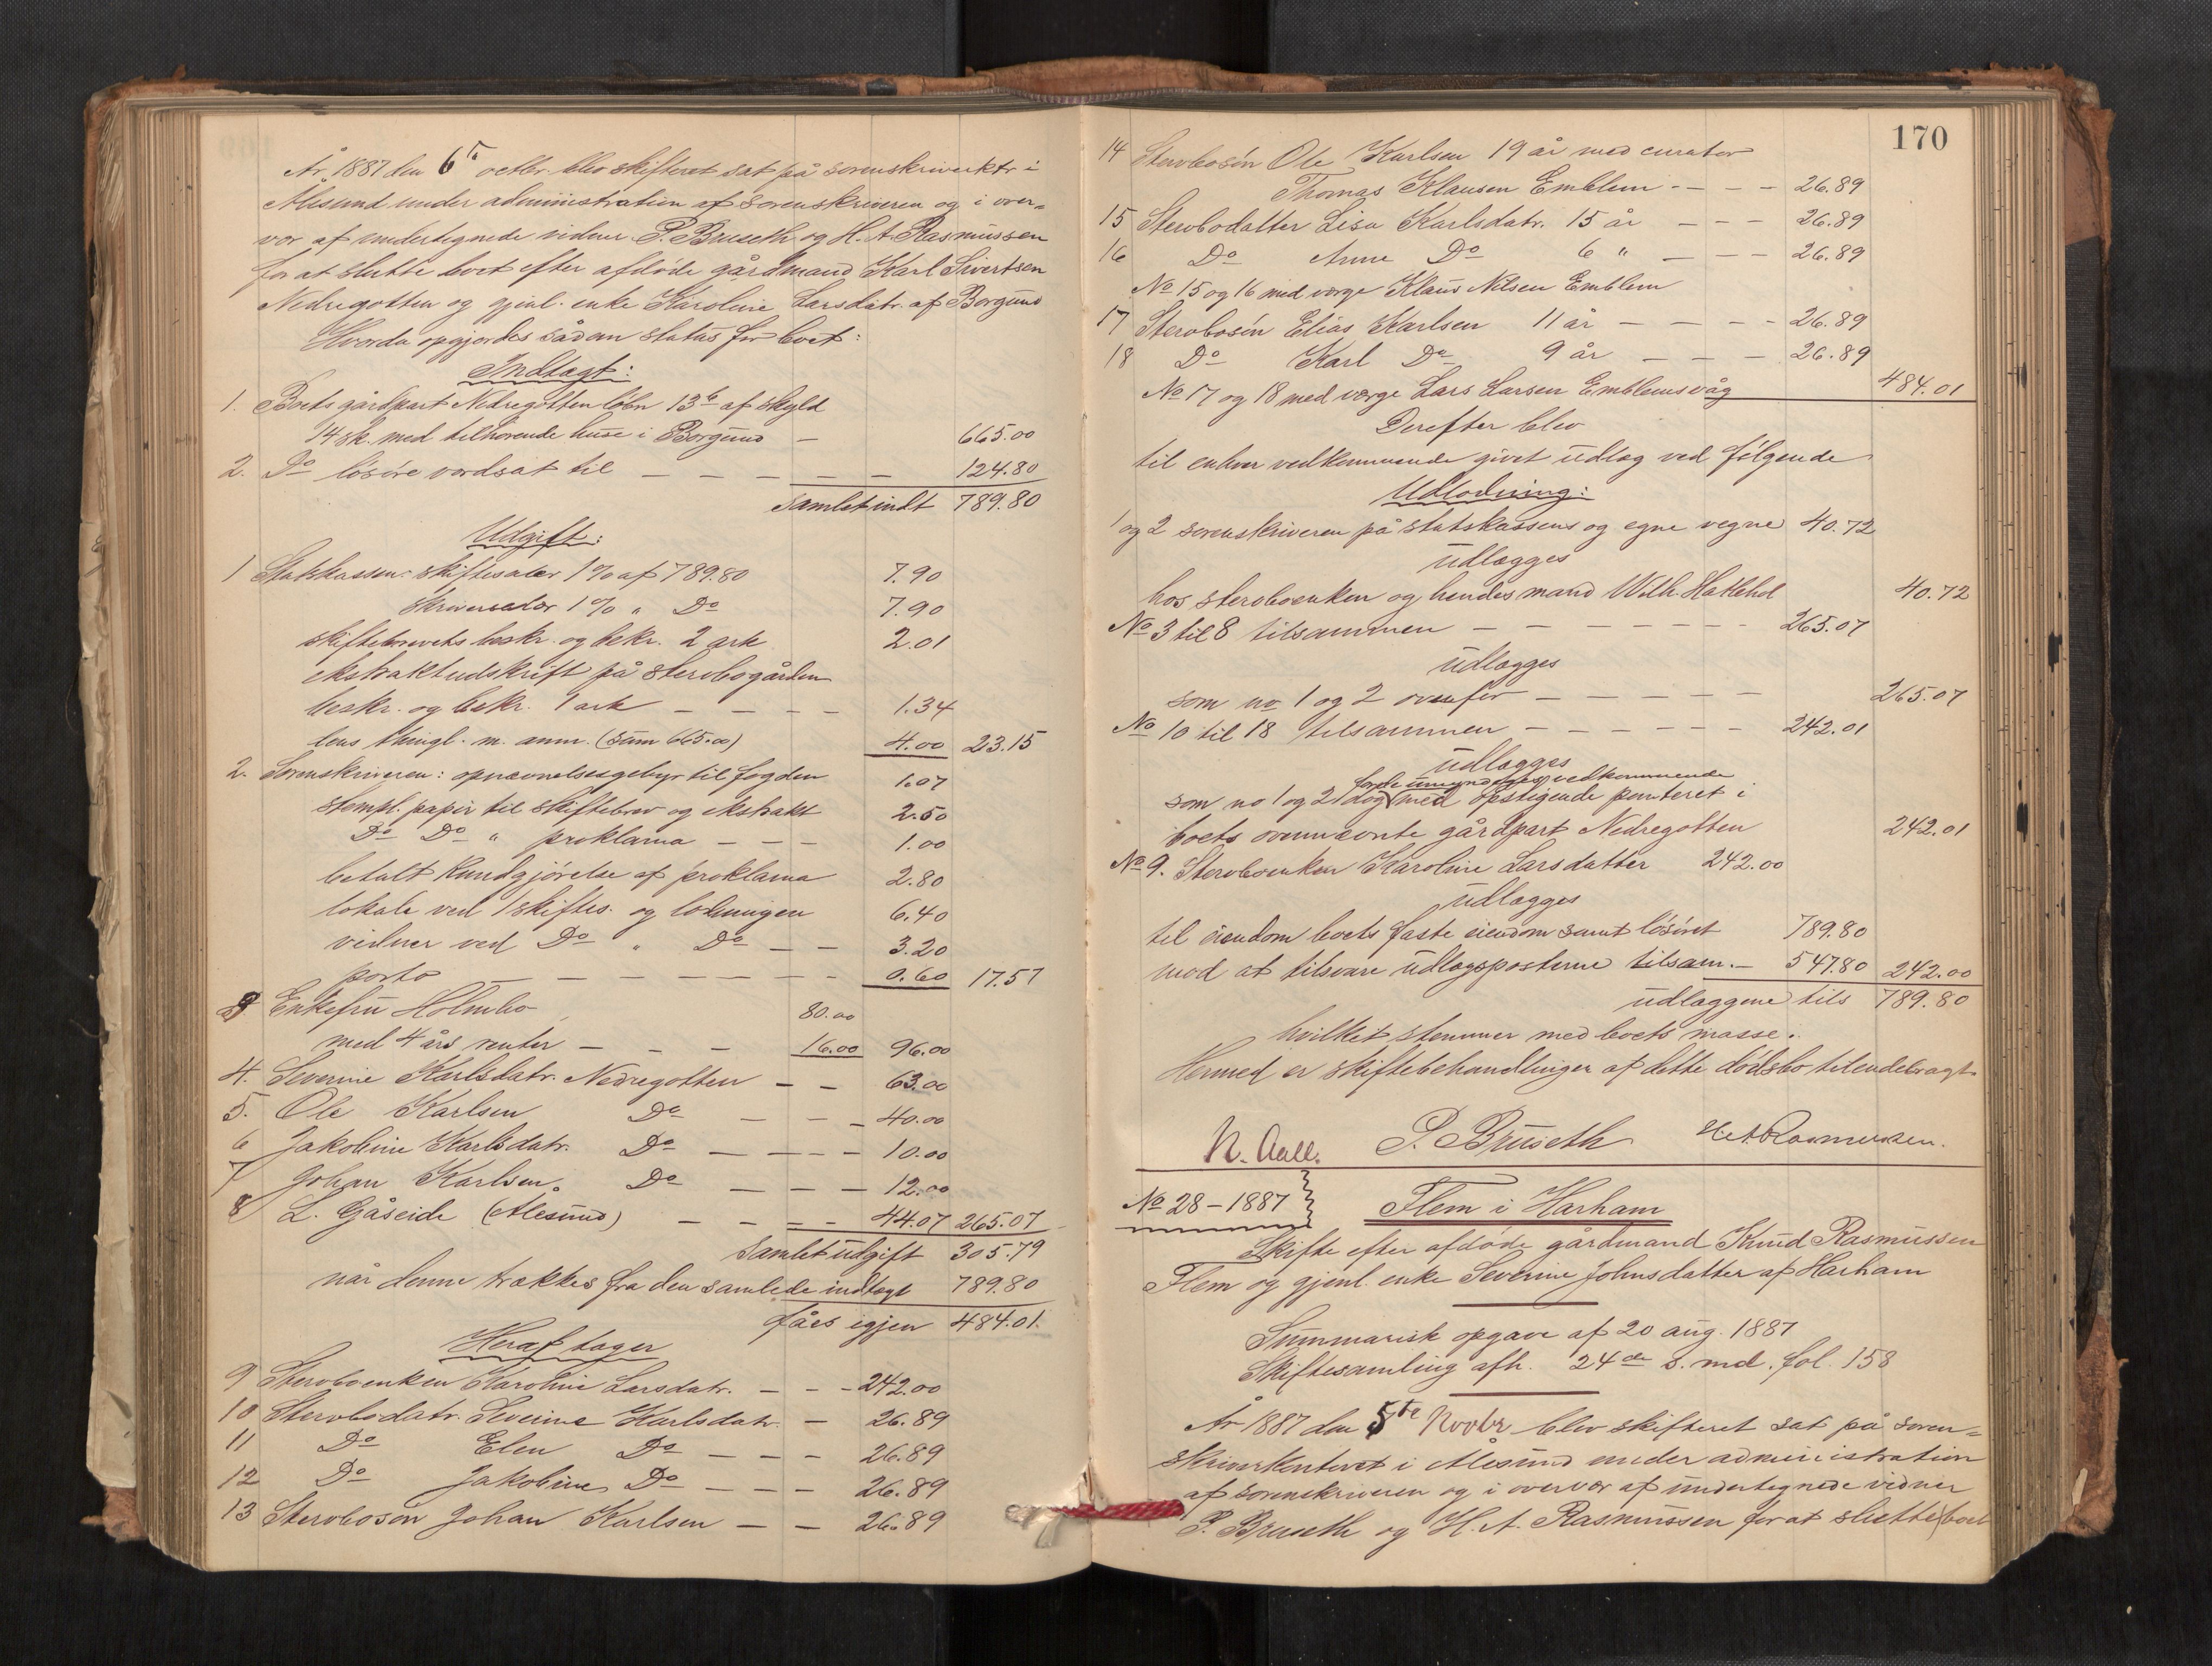 År 1887 den 6te octbr. blev skifteret sat på sorenskriverktr i
Ålesund under administration af sorenskriveren og i over-
vær af undertegnede vidner P. Bruseth og H. A. Rasmussen
for at slutte boet efter afdøde gårdmand Karl Sivertsen
Nedregotten og gjenl. enke Karoline Larsdatr. af Borgund
Hvorda opgjordes sådan status for boet:
Indtægt:
1. Boets gårdpart Nedregotten løbn 13b af skyld
14 sk. med tilhørende huse i Borgund — 665.00
2. Do løsøre værdsat til — — — — — 124.80
samlet indt 789.80
Udgift:
1 Statskassen: skiftesalær 1% af 789.80 7.90
skriversalær 1% " Do 7.90
skiftebrevets beskr. og bekr. 2 ark 2.01
ekstraktudskrift på sterbogården
beskr. og bekr. 1 ark — — — — 1.34
dens thingl. m. anm. (sum 665.00) 4.00 23.15
2. Sorenskriveren: opnævnelsesgebyr til fogden 1.07
stempl. papir til skiftebrev og ekstrakt 2.50
Do Do " proklama — — — 1.00
betalt kundgjørelse af proklama 2.80
lokale ved 1 skiftes. og lodningen 6.40
vidner ved Do " Do — — 3.20
porto — — — — — — — 0.60 17.57
3 Enkefru Holmbo 80.00
med 4 års renter — — — 16.00 96.00
4. Severine Karlsdatr. Nedregotten — — 63.00
5. Ole Karlsen Do — — — 40.00
6 Jakobine Karlsdatr. Do — — — — 10.00
7 Johan Karlsen Do — — — 12.00
8 L. Gåseide (Ålesund) — — — — 44.07 265.07
samlet udgift 305.79
når denne trækkes fra den samlede indtægt 789.80
fåes igjen 484.01
Heraf tager
9 Sterboenken Karoline Larsdatr. — — — 242.00
10 Sterbodatr. Severine Karlsdatr. — 26.89
11 Do Elen Do — — — 26.89
12 Do Jakobine Do — — — 26.89
13 Stervbosøn Johan Karlsen — — 26.89
170
14 Stervbosøn Ole Karlsen 19 år med curator
Thomas Klausen Emblem - — — — 26.89
15 Stervbodatter Lisa Karlsdatr. 15 år — — — 26.89
16 Do Anne Do 6 " — — — 26.89
No 15 og 16 med værge Klaus Nilsen Emblem
17 Stervbosøn Elias Karlsen 11 år — — — — 26.89
18 Do Karl Do 9 år — — — 26.89
No 17 og 18 med værge Lars Larsen Emblemsvåg 484.01
Derefter blev
til enhver vedkommende givet udlæg ved følgende
Udlodning:
1 og 2 sorenskriveren på statskassens og egne vegne 40.72
udlægges
hos stervboenken og hendes mand Wilh. Hatlehol 40.72
No 3 til 8 tilsammen — — — — — — — 265.07
udlægges
som no 1 og 2 ovenfor — — — — — 265.07
No 10 til 18 tilsammen — — — — — — 242.01
udlægges
for de umyndiges vedkommende
som no 1 og 2 dog med opstigende panteret i
boets ovennævnte gårdpart Nedregotten 242.01
No 9. Stervboenken Karoline Larsdatter 242.00
udlægges
til eiendom boets faste eiendom samt løsøret 789.80
mod at tilsvare udlægsposterne tilsam. — 547.80 242.00
udlæggene tils 789.80
hvilket stemmer med boets masse.
Hermed er skiftebehandlingen af dette dødsbo tilendebragt
N. Aall. P. Bruseth H. A. Rasmussen.
No 28 – 1887 Flem i Harham
Skifte efter afdøde gårdmand Knud Rasmussen
Flem og gjenl. enke Severine Johnsdatter af Harham
Summarisk opgave af 20 aug. 1887
Skiftesamling afh. 24de s. md. fol. 158
År 1887 den 5te Novbr blev skifteret sat på soren-
skriverkontoret i Ålesund under administration
af sorenskriveren og i overvær af undertegnede vidner
P. Bruseth og H. A. Rasmussen for at slutte boet